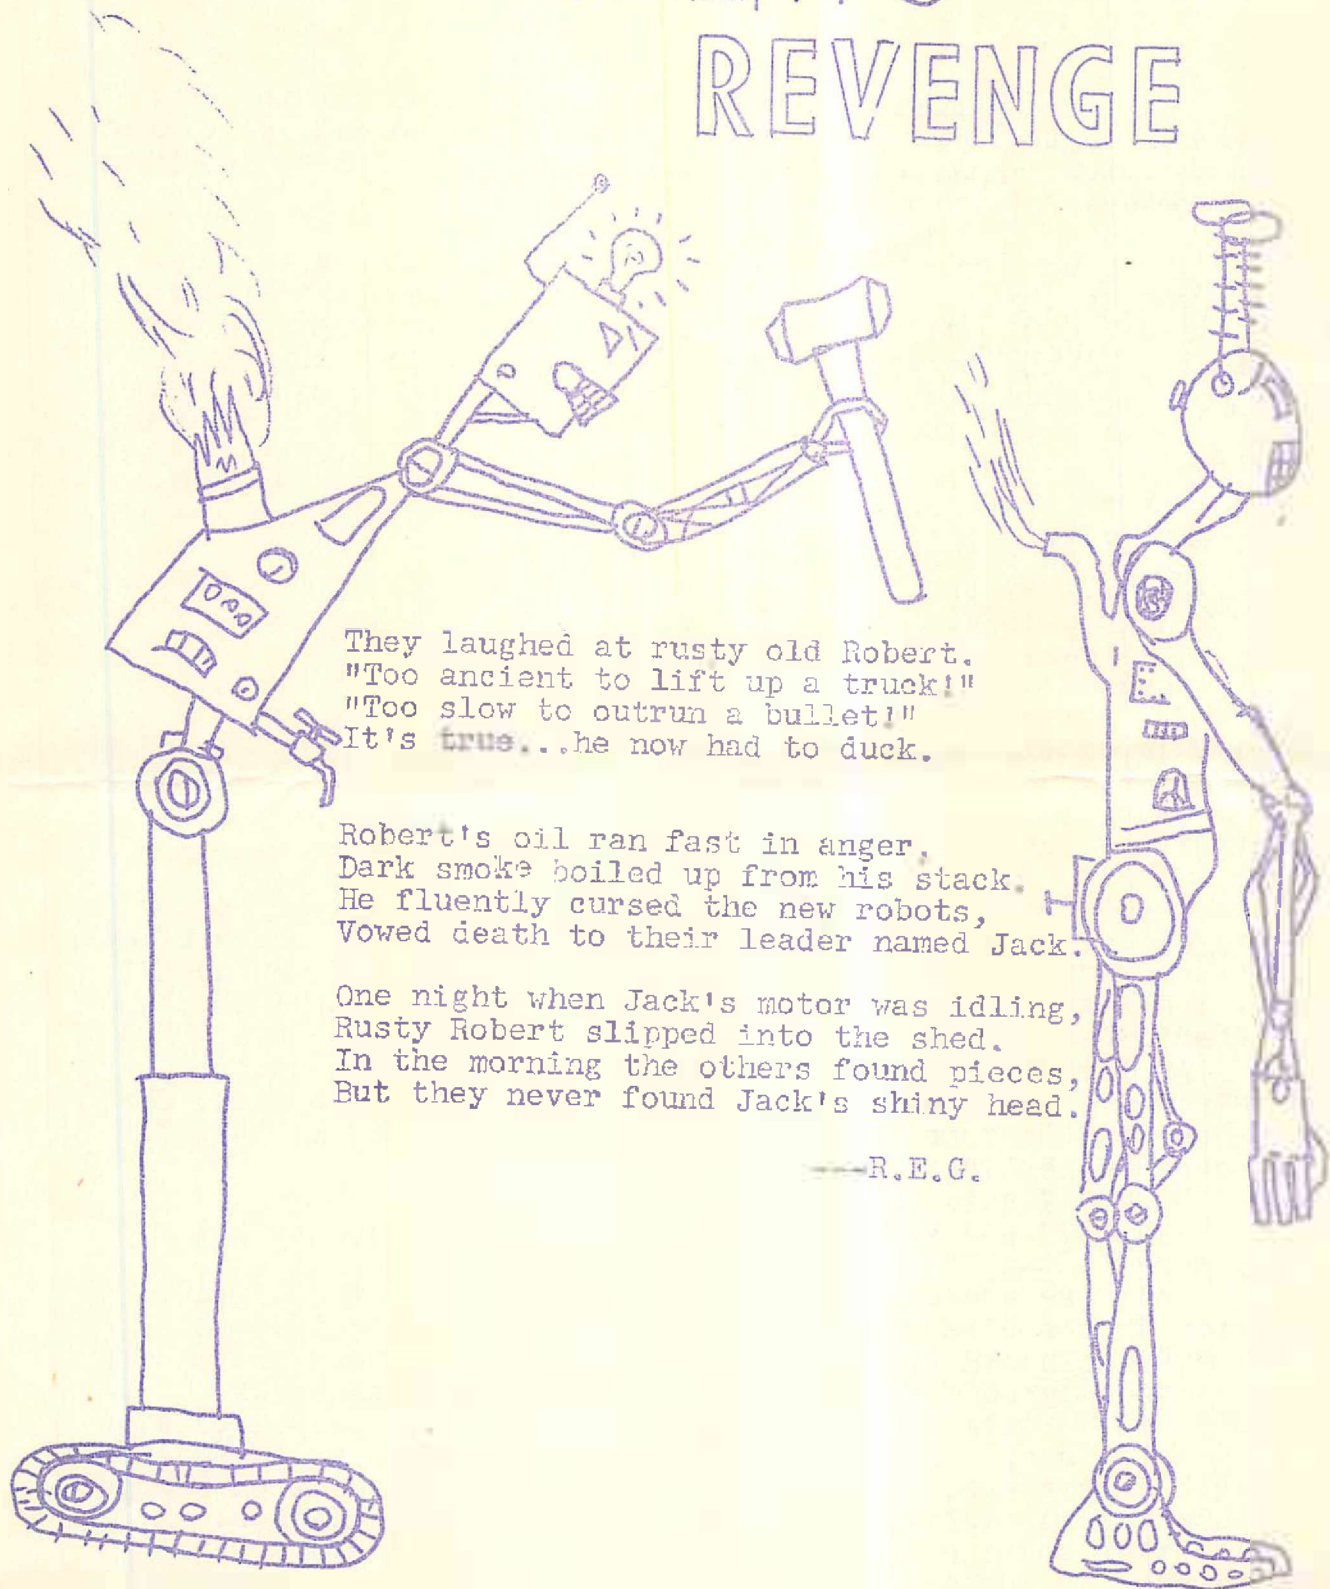 REVENGE
They laughed at rusty old Robert.
"Too ancient to lift up a truck!"
"Too slow to outrun a bullet!"
It's true...he now had to duck.
Robert's oil ran fast in anger.
Dark smoke boiled up from his stack.
He fluently cursed the new robots,
Vowed death to their leader named Jack.
One night when Jack's motor was idling,
Rusty Robert slipped into the shed.
In the morning the others found pieces,
But they never found Jack's shiny head.
---R.E.G.